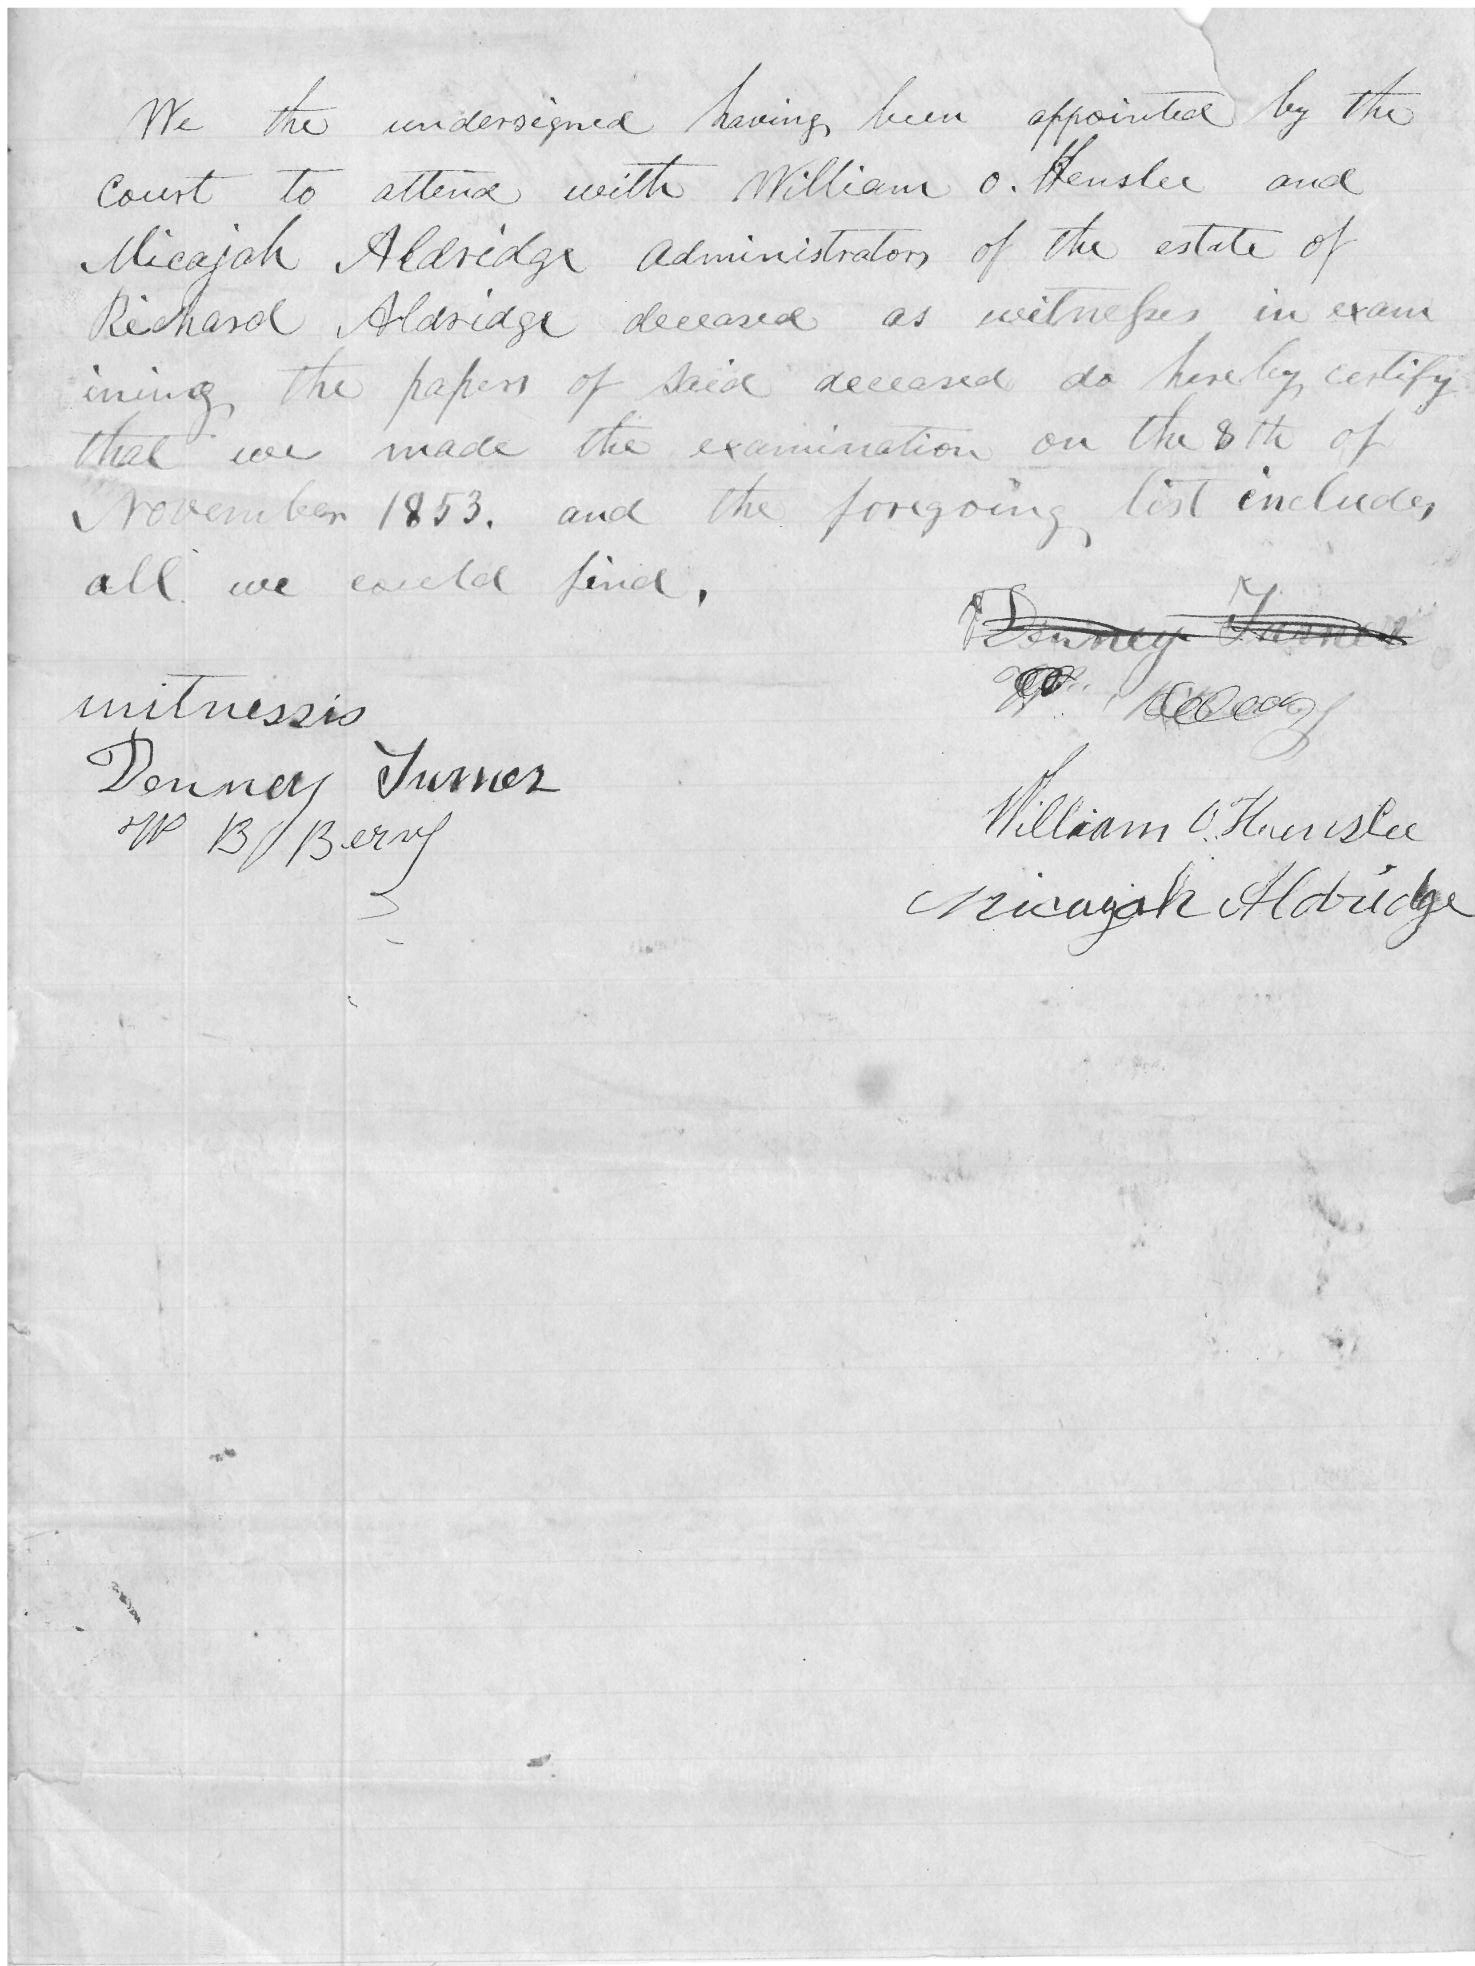 We the undersigned having been appointed by the
Court to attend with William O. Henslee and
Micajah Aldridge administrators of the estate of
Richard Aldridge deceased as witnesses in exam
ining the papers of said deceased do hereby certify
that we made the examination on the 8th of
November 1853. and the foregoing list includes
all we could find.
Denney Turner
witnessis
Denney Turner
W B Berry
William O. Henslee
Micajah Aldridge